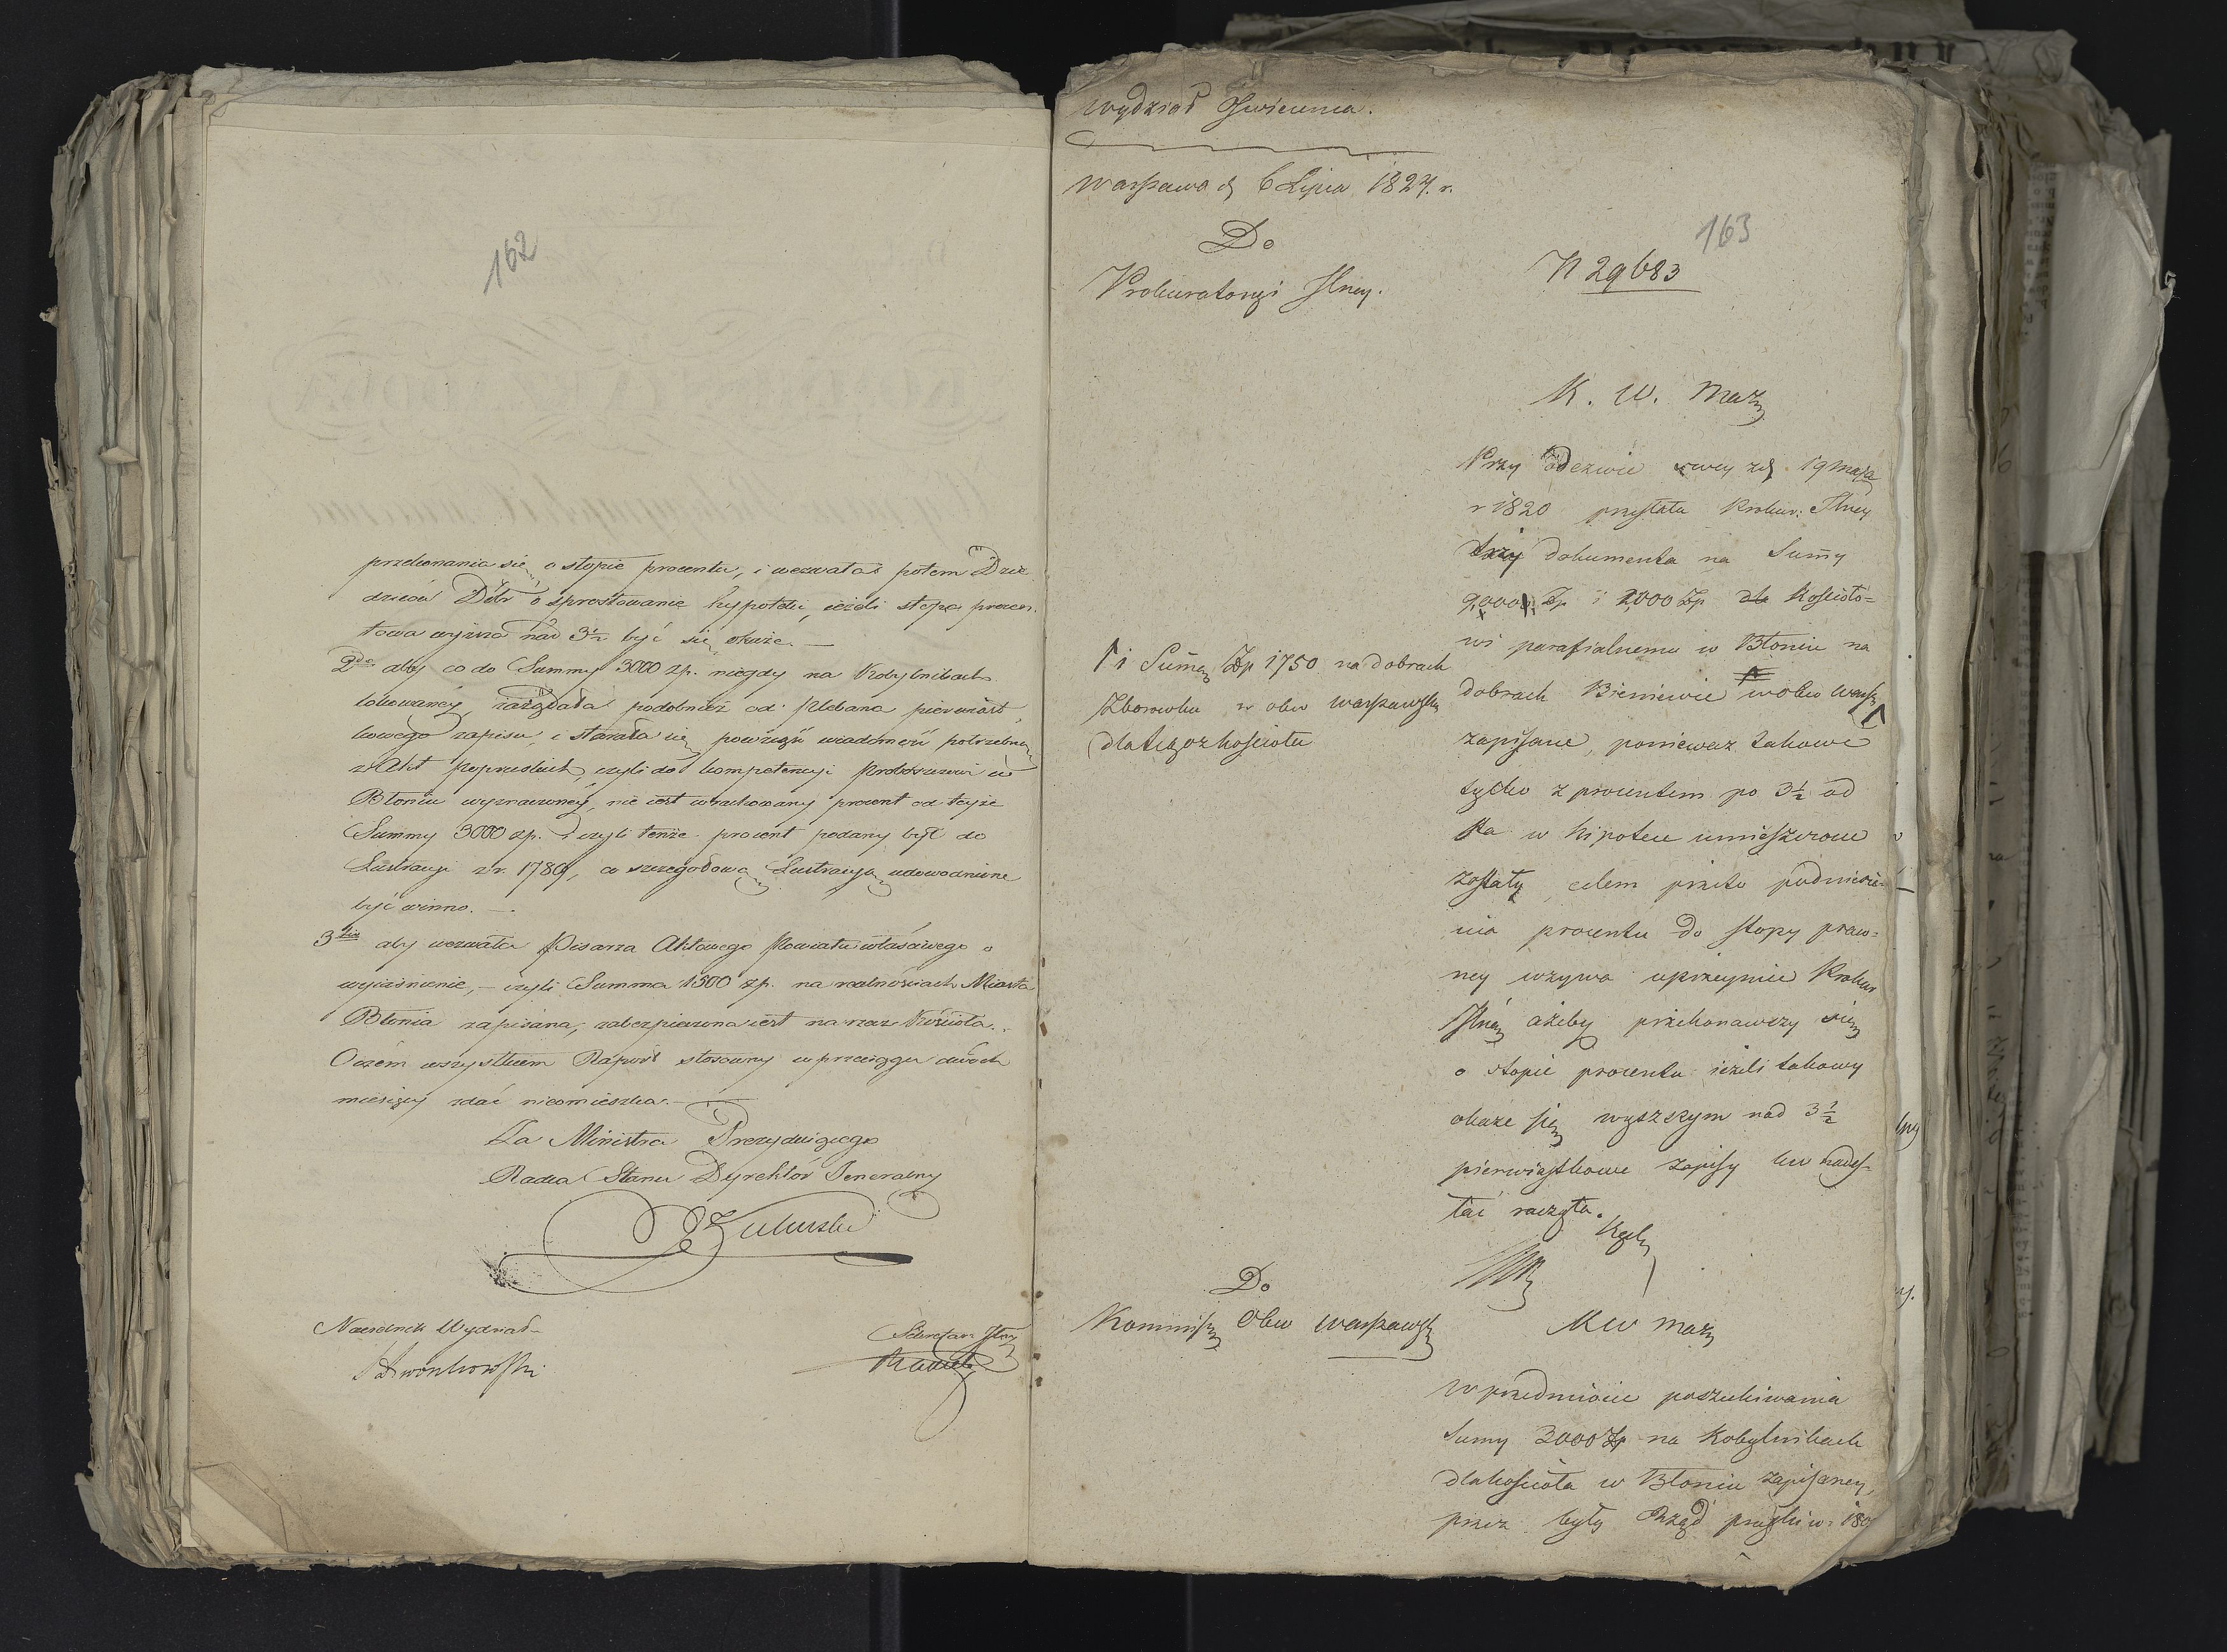 162
przekonania się o stopie procentu, i wezwała potem Dzie
dziców Dóbr o sprostowanie hypoteki, ieżeli stopa procen
towa wyższa nad 3½ być się okaże. —
2do aby co do Summy 3000 zp. niegdy na Kobylnikach
lokowanéy, zażądała podobnież od Plebana pierwiast
kowego zapisu, i starała się powziąść wiadomość potrzebną
z Akt Popruskich, czyli do kompetencyi Proboszczowi w
Błoniu wyznaczonéy, nie iest wrachowany procent od teyże
Summy 3000 zp. i czyli tenże procent podany był do
Lustracyi z r. 1789, co szczegółową Lustracyą udowodnione
być winno. —
3tio aby wezwała Pisarza Aktowego Powiatu właściwego o
wyjaśnienie, — czyli Summa 1500 zp. na realnościach Miasta
Błonia zapisana, zabezpieczona iest na rzecz Kościoła.
O czém wszystkiem Raport stosowny w przeciągu dwóch
miesięcy zdać nieomieszka. —
Za Ministra Prezyduiącego
Radca Stanu Dyrektor Jeneralny
Naczelnik Wydział
Sekretarz Jlny
Wydział Oświecenia.
Warszawa d. 6 Lipca 1827. r.
163
Do
Prokuratoryi Jlney.
N 29683
K. W. Maz
Przy odezwie swey z d. 19 maja
r 1820 przysłała Prokur: Jlney
trzy dokumenta na Sumy
9000 Zp i 2000 Zp dla Kościoło=
wi parafialnemu w Błoniu na
dobrach Bieniewie w obw Warsz
i Sumę Zp 1750 na dobrach
Zborowku w obw warszawsk
dla tegoż kościoła
zapisane, ponieważ takowe
tylko z procentem po 3½ od
sta w hipotece umieszczone
zostały, celem przeto podniesie=
nia procentu do stopy praw=
ney wzywa uprzeymie Prokur
Jlną ażeby przekonawszy się
o stopie procentu ieżeli takowy
okaże się wyższym nad 3½
pierwiastkowe zapisy tu nades=
łać raczyła.
Do
Kommissa Obw warszawsk
KW Maz
W przedmiocie poszukiwania
Sumy 3000 Zp na Kobylnikach
dla kościoła w Błoniu zapisaney,
przez były Rząd pruski w: 180